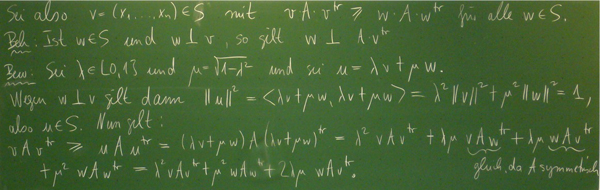 Sei also v = (x₁, ..., xₙ) ∈ S mit v A · vᵗʳ ≥ w · A · wᵗʳ für alle w ∈ S.
Beh. Ist w ∈ S und w ⊥ v, so gilt w ⊥ A · vᵗʳ
Bew. Sei λ ∈ [0,1] und μ = √(1-λ²) und sei u = λv + μw.
Wegen w ⊥ v gilt dann ‖u‖² = <λv + μw, λv + μw> = λ²‖v‖² + μ²‖w‖² = 1,
also u ∈ S. Nun gilt:
v A vᵗʳ ≥ u A uᵗʳ = (λv + μw) A (λv + μw)ᵗʳ = λ² v A vᵗʳ + λμ v A wᵗʳ + λμ w A vᵗʳ
+ μ² w A wᵗʳ = λ² v A vᵗʳ + μ² w A wᵗʳ + 2λμ w A vᵗʳ.
gleich, da A symmetrisch